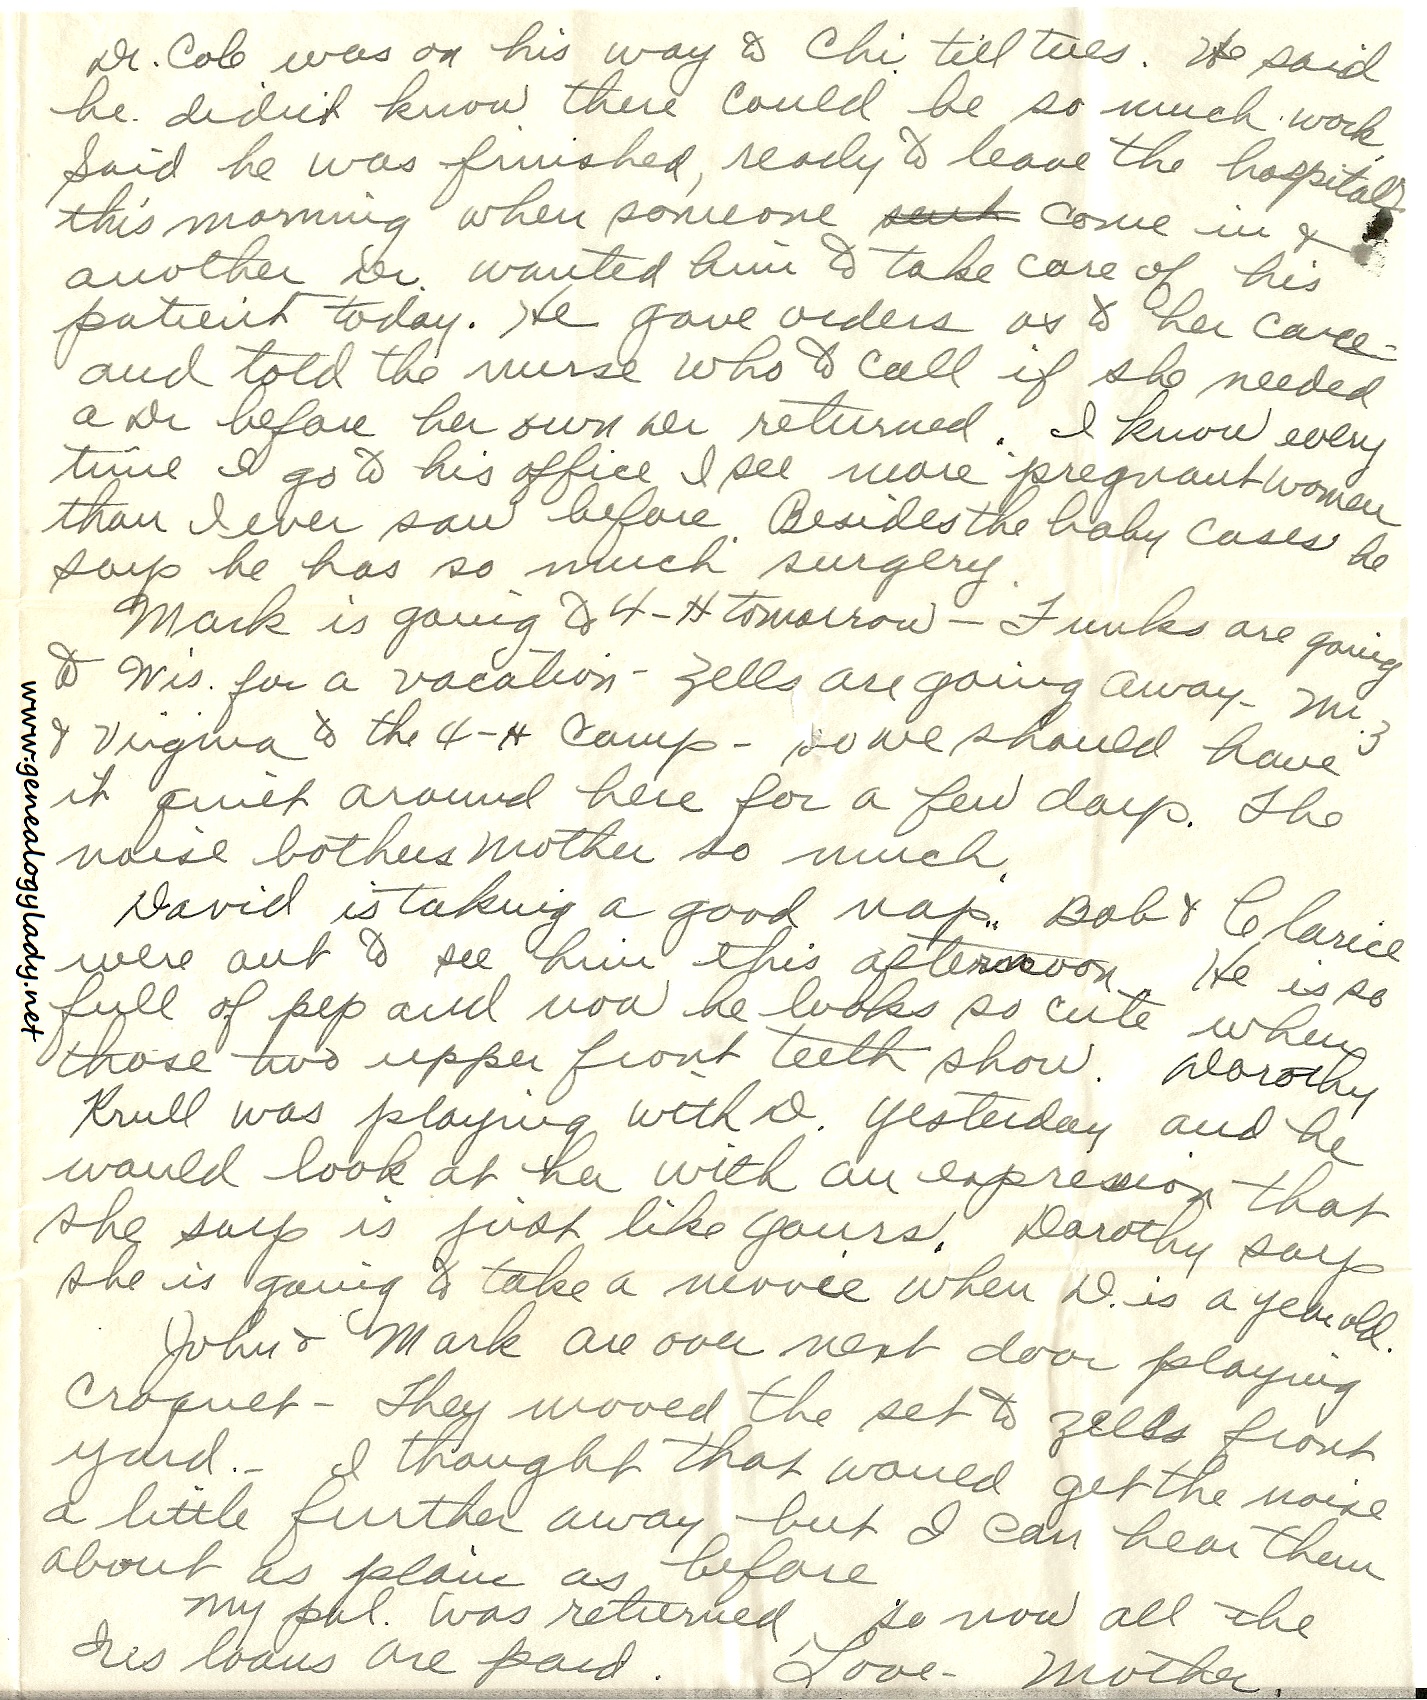 Dr. Cole was on his way to Chi. till tues. He said
he didn't know there could be so much work.
Said he was finished, ready to leave the hospital
this morning when someone sent come in &
another Dr. wanted him to take care of his
patient today. He gave orders as to her care
and told the nurse who to call if she needed
a Dr before her own Dr returned. I know every
time I go to his office I see more pregnant women
than I ever saw before. Besides the baby cases he
says he has so much surgery.
Mark is going to 4-H tomorrow - Funks are going
to Wis. for a vacation - Zells are going away - M.
& Virginia to the 4-H Camp - so we should have
it quiet around here for a few days. The
noise bothers Mother so much.
David is taking a good nap. Bob & Clarice
were out to see him this afternoon. He is so
full of pep and now he looks so cute when
those two upper front teeth show. Dorothy
Krull was playing with D. yesterday and he
would look at her with an expression that
she says is just like yours. Dorothy says
she is going to take a movie when D. is a year old.
John & Mark are over next door playing
Croquet - They moved the set to Zells front
yard. - I thought that would get the noise
a little further away but I can hear them
about as plain as before
My pol. was returned, so now all the
Ins loans are paid. Love - Mother.
www.genealogylady.net